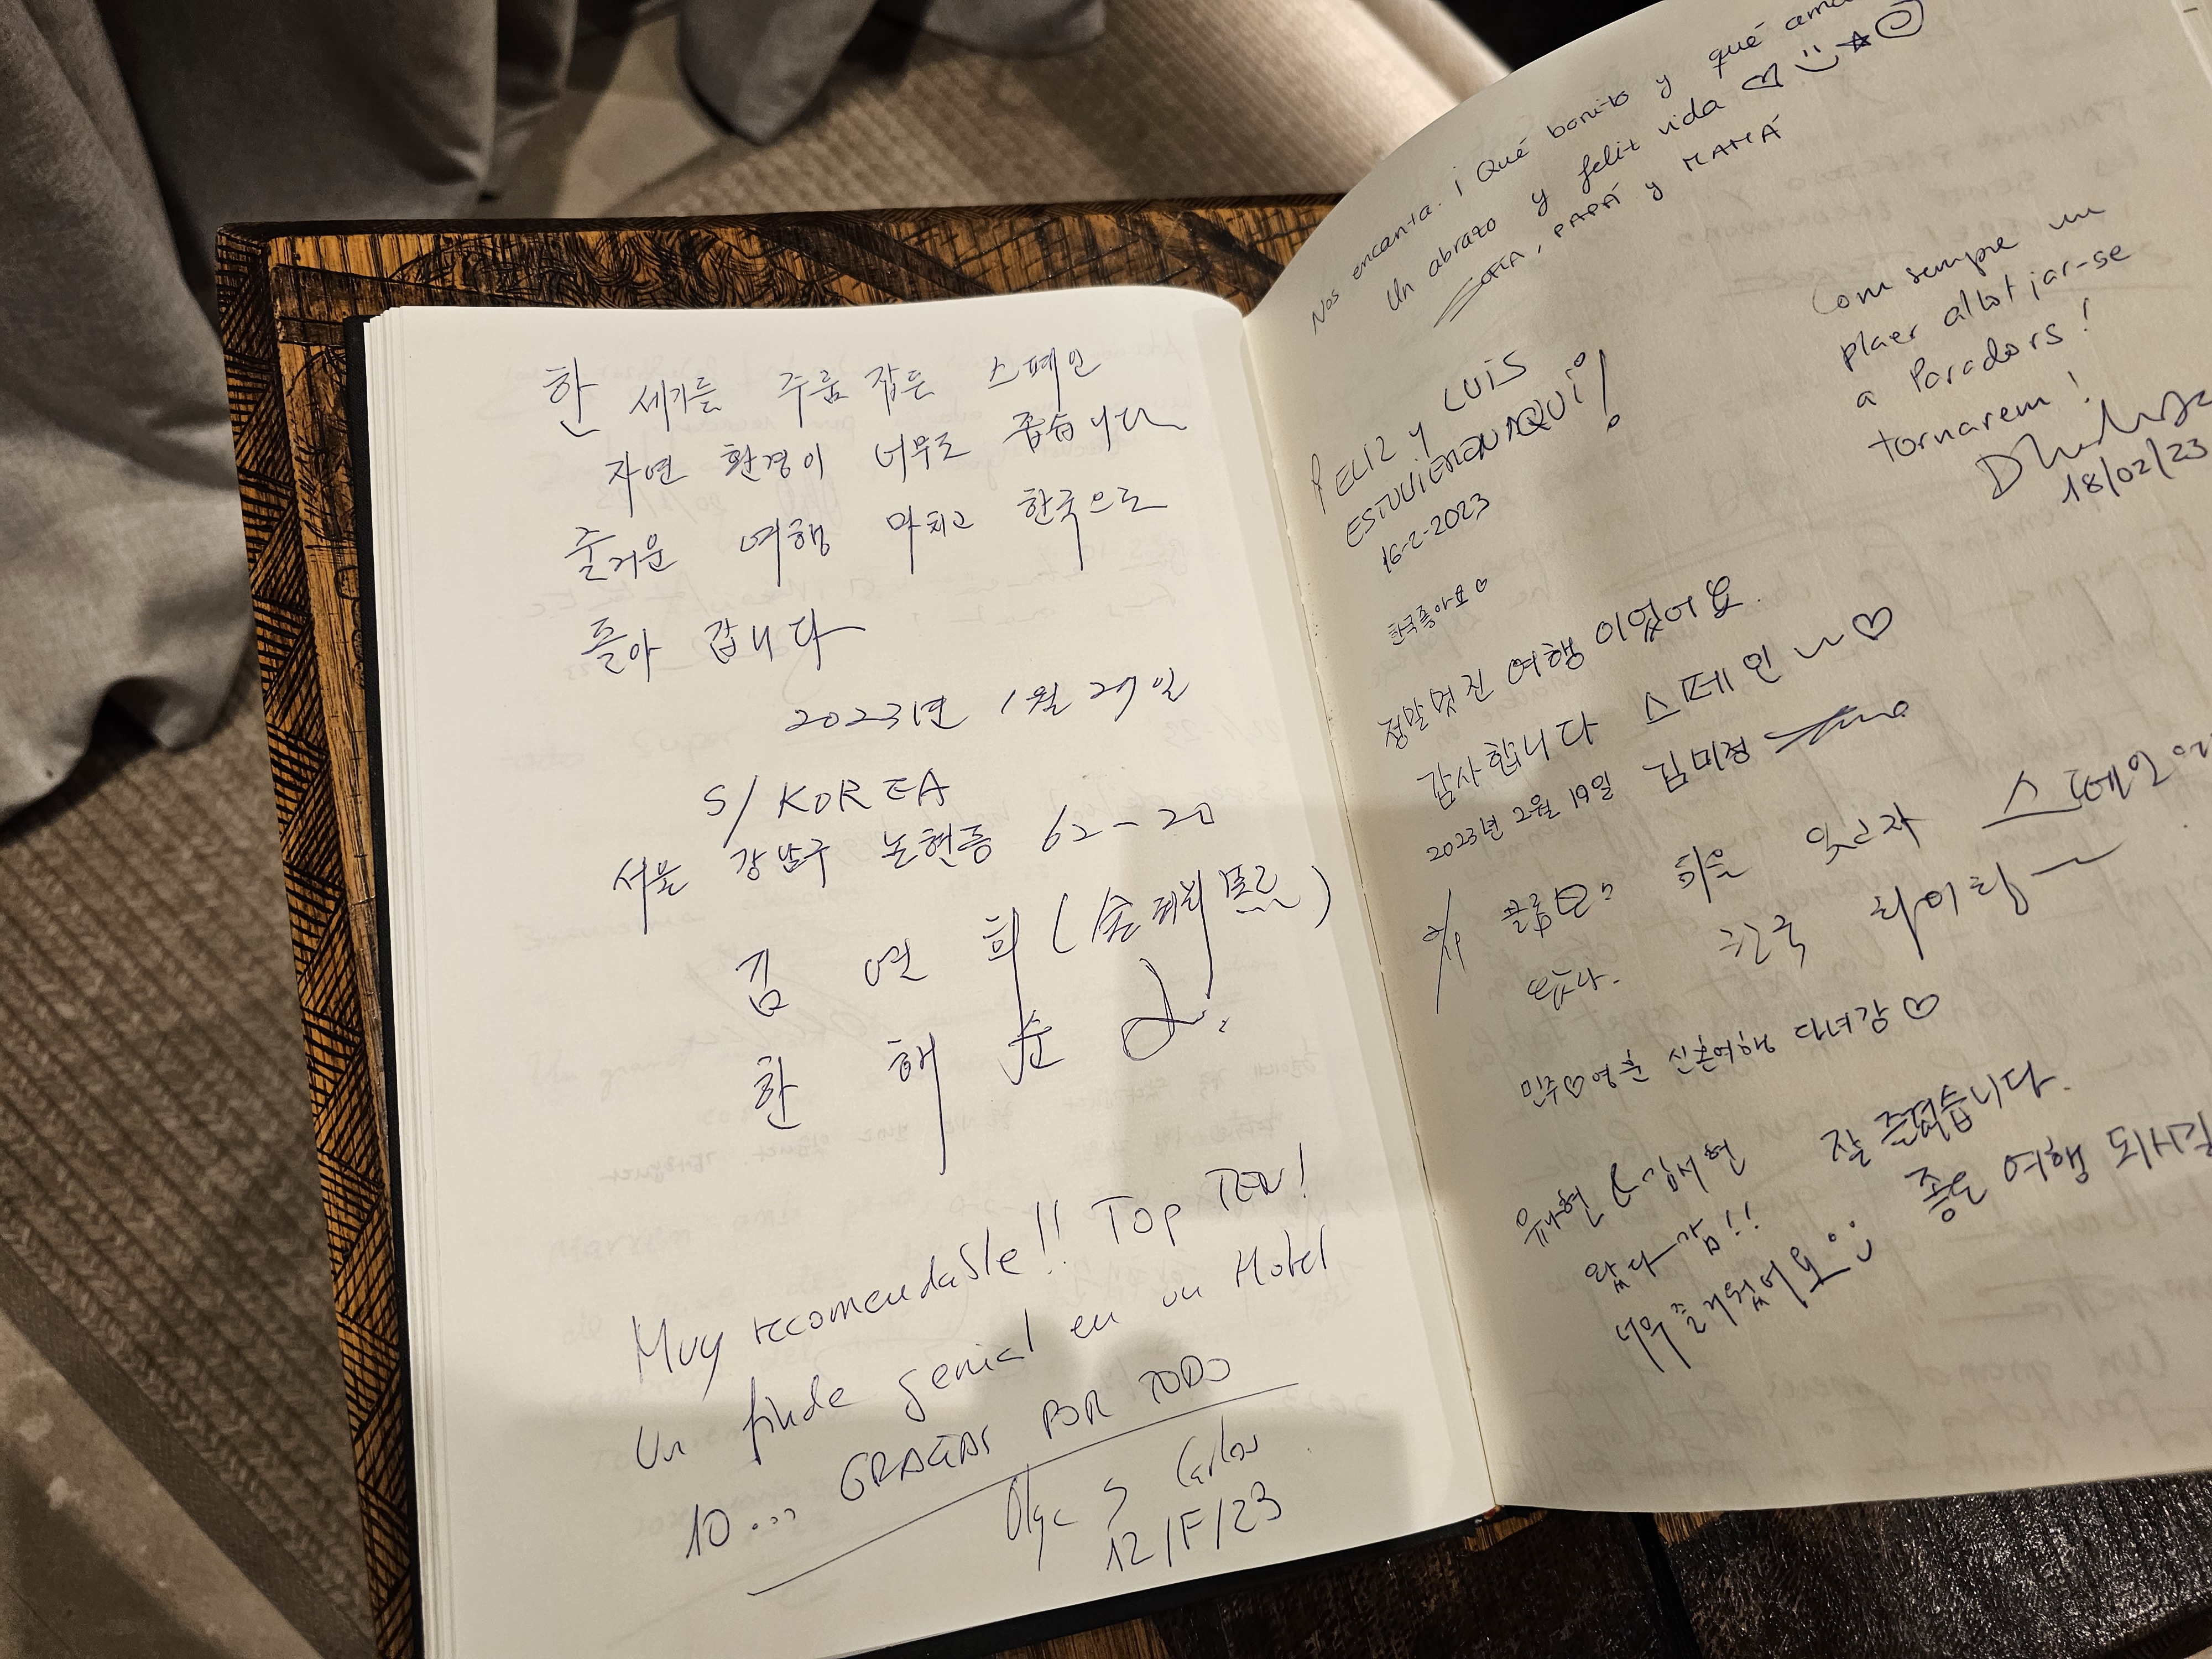 한 세기를 주름 잡든 스페인
자연 환경이 너무도 좁습니다
즐거운 여행 마치고 한국으로
돌아 갑니다
2023년 1월 29일
S/KOREA
서울 강남구 논현동 62-20
김 연 희
한 해 순
Muy recomendable!! Top TEN!
Un finde genial en un Hotel
10... GRACIAS POR TODO
Olga y Carlos
12/F/23
Nos encanta. ¡Qué bonito y qué
Un abrazo y feliz vida
SOFIA, PAPÁ y MAMÁ
FELIZ y LUIS
ESTUVIERON AQUÍ!
16-2-2023
Com sempre un
plaer allotjar-se
a Paradors!
tornarem!
18/02/23
한국좋아요♡
정말멋진 여행이었어요.
감사합니다 스페인~♡
2023년 2월 19일 김미정
스페인
한국 화이팅~
민주♡영훈 신혼여행 다녀감♡
유재현 & 김서현 잘 즐겼습니다.
왔다감!! 좋은 여행 되시길
너무 즐거웠어요